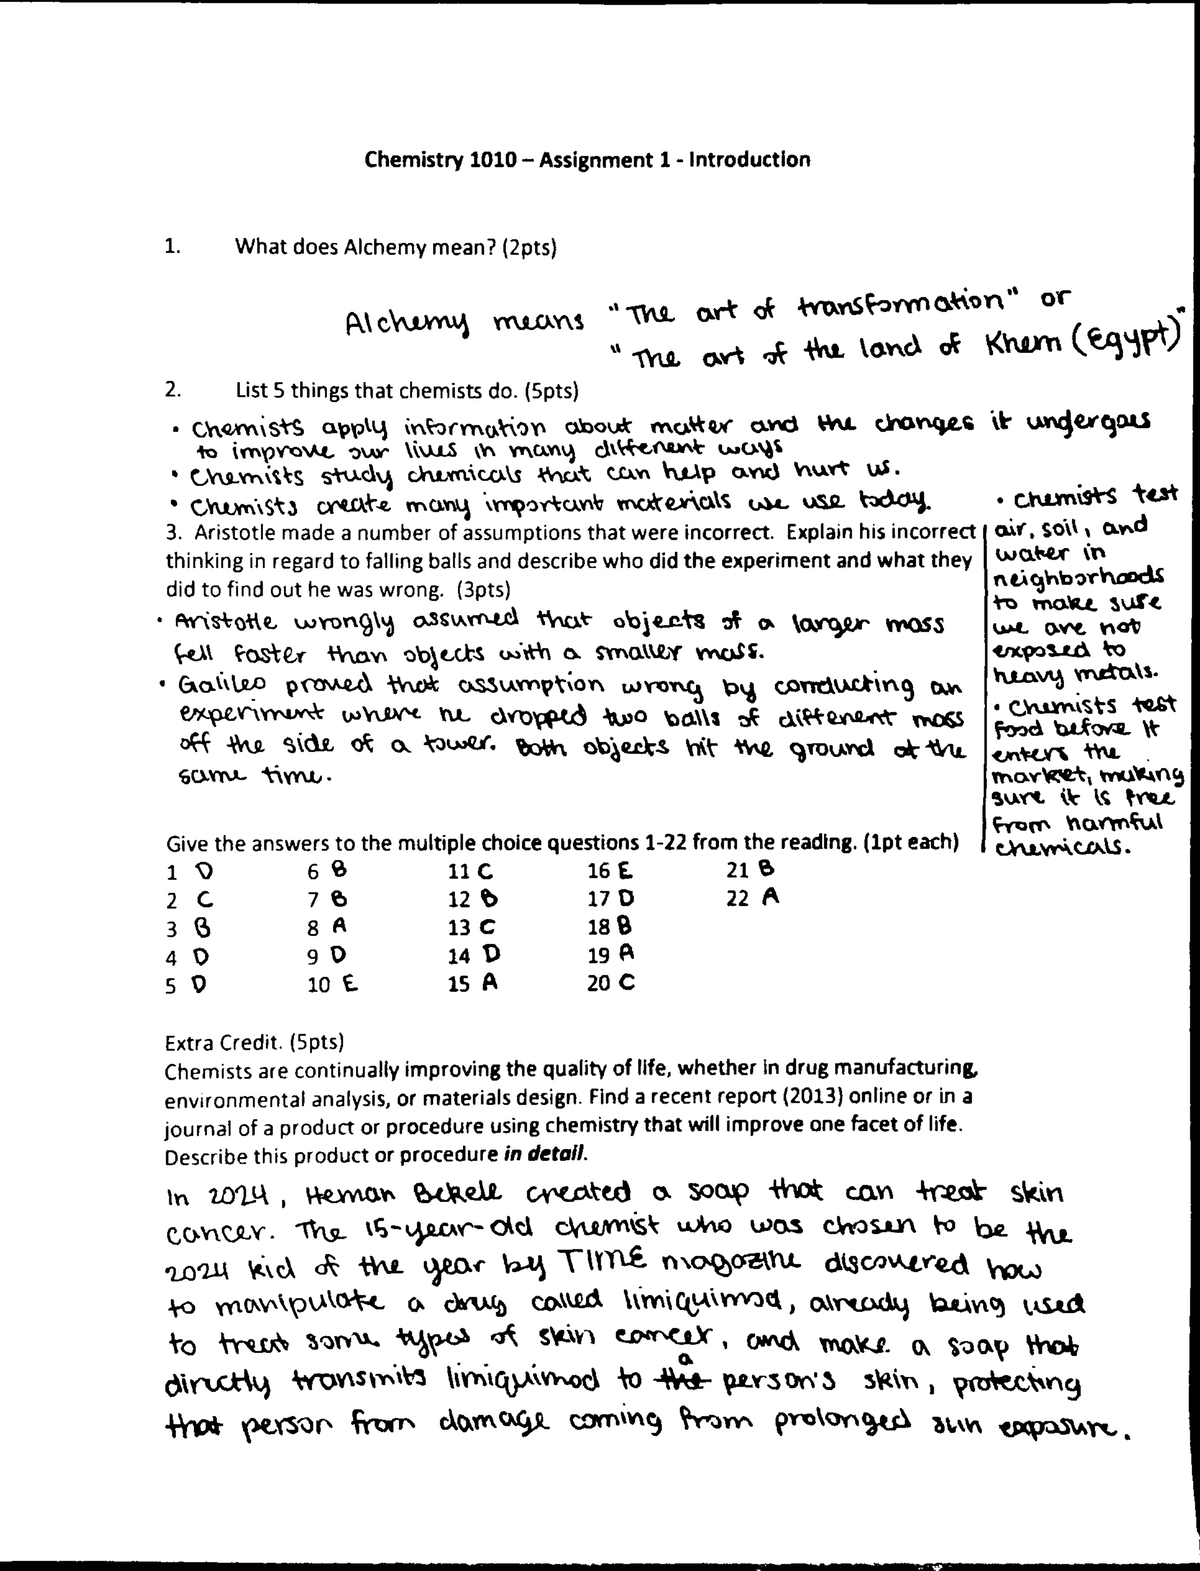 Chemistry 1010 – Assignment 1 - Introduction
1. What does Alchemy mean? (2pts)
Alchemy means "The art of transformation" or
"The art of the land of Khem (Egypt)"
2. List 5 things that chemists do. (5pts)
• Chemists apply information about matter and the changes it undergoes
to improve our lives in many different ways
• Chemists study chemicals that can help and hurt us.
• Chemists create many important materials we use today.
• Chemists test
air, soil, and
water in
neighborhoods
to make sure
we are not
exposed to
heavy metals.
• Chemists test
food before it
enters the
market, making
sure it is free
from harmful
chemicals.
3. Aristotle made a number of assumptions that were incorrect. Explain his incorrect
thinking in regard to falling balls and describe who did the experiment and what they
did to find out he was wrong. (3pts)
• Aristotle wrongly assumed that objects of a larger mass
fell faster than objects with a smaller mass.
• Galileo proved that assumption wrong by conducting an
experiment where he dropped two balls of different mass
off the side of a tower. Both objects hit the ground at the
same time.
Give the answers to the multiple choice questions 1-22 from the reading. (1pt each)
1 D 6 B 11 C 16 E 21 B
2 C 7 B 12 B 17 D 22 A
3 B 8 A 13 C 18 B
4 D 9 D 14 D 19 A
5 D 10 E 15 A 20 C
Extra Credit. (5pts)
Chemists are continually improving the quality of life, whether in drug manufacturing,
environmental analysis, or materials design. Find a recent report (2013) online or in a
journal of a product or procedure using chemistry that will improve one facet of life.
Describe this product or procedure in detail.
In 2024, Heman Bekele created a soap that can treat skin
cancer. The 15-year-old chemist who was chosen to be the
2024 kid of the year by TIME magazine discovered how
to manipulate a drug called limiquimod, already being used
to treat some types of skin cancer, and make a soap that
directly transmits limiquimod to the a person's skin, protecting
that person from damage coming from prolonged sun exposure.